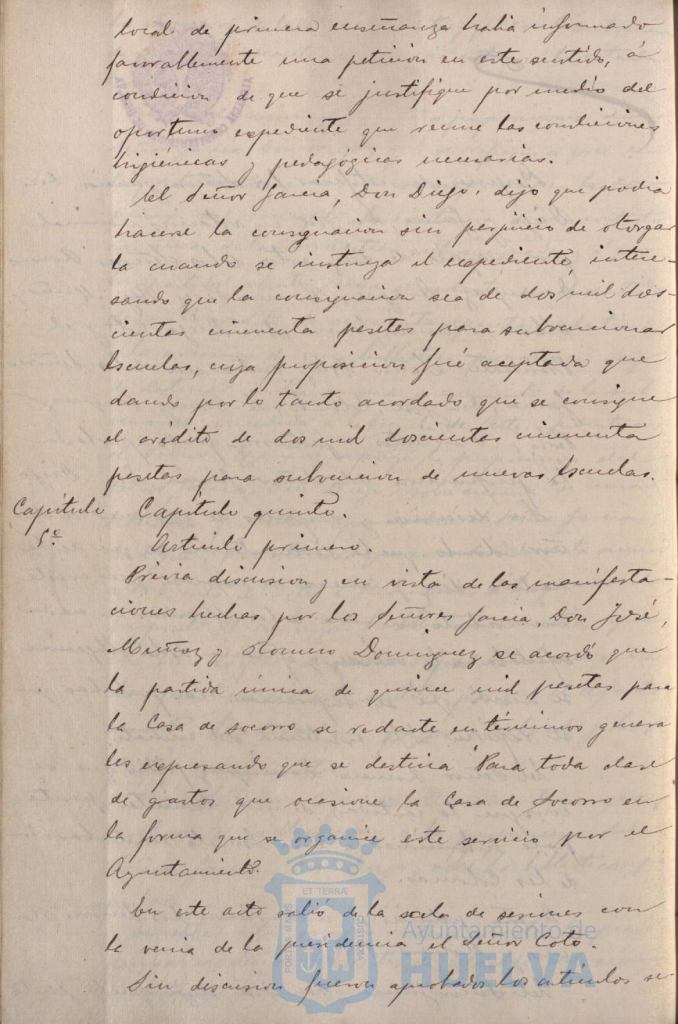 local de primera enseñanza habia informado
favorablemente una peticion en este sentido, á
condicion de que se justifique por medio del
oportuno expediente que reune las condiciones
higiénicas y pedagógicas necesarias.
El Señor Garcia, Don Diego, dijo que podia
hacerse la consignacion sin perjuicio de otorgar
la cuando se instruya el expediente, intere-
sando que la consignacion sea de dos mil dos-
cientas cincuenta pesetas para subvencionar
Escuelas, cuya proposicion fué aceptada que
dando por lo tanto acordado que se consigne
el crédito de dos mil doscientas cincuenta
pesetas para subvencion de nuevas Escuelas.
Capítulo 5º
Capítulo quinto.
Artículo primero.
Prévia discusion y en vista de las manifesta-
ciones hechas por los Señores Garcia, Don José,
Muñoz y Romero Dominguez se acordó que
la partida única de quince mil pesetas para
la Casa de Socorro se redacte en términos genera
les expresando que se destina "Para toda clase
de gastos que ocasione la Casa de Socorro en
la forma que se organice este servicio por el
Ayuntamiento."
En este acto salió de la sala de sesiones con
la venia de la presidencia el Señor Coto.
Sin discusion fueron aprobados los artículos se
Ayuntamiento de
HUELVA
PORTUS MARIS
ET TERRÆ
CUSTODIA